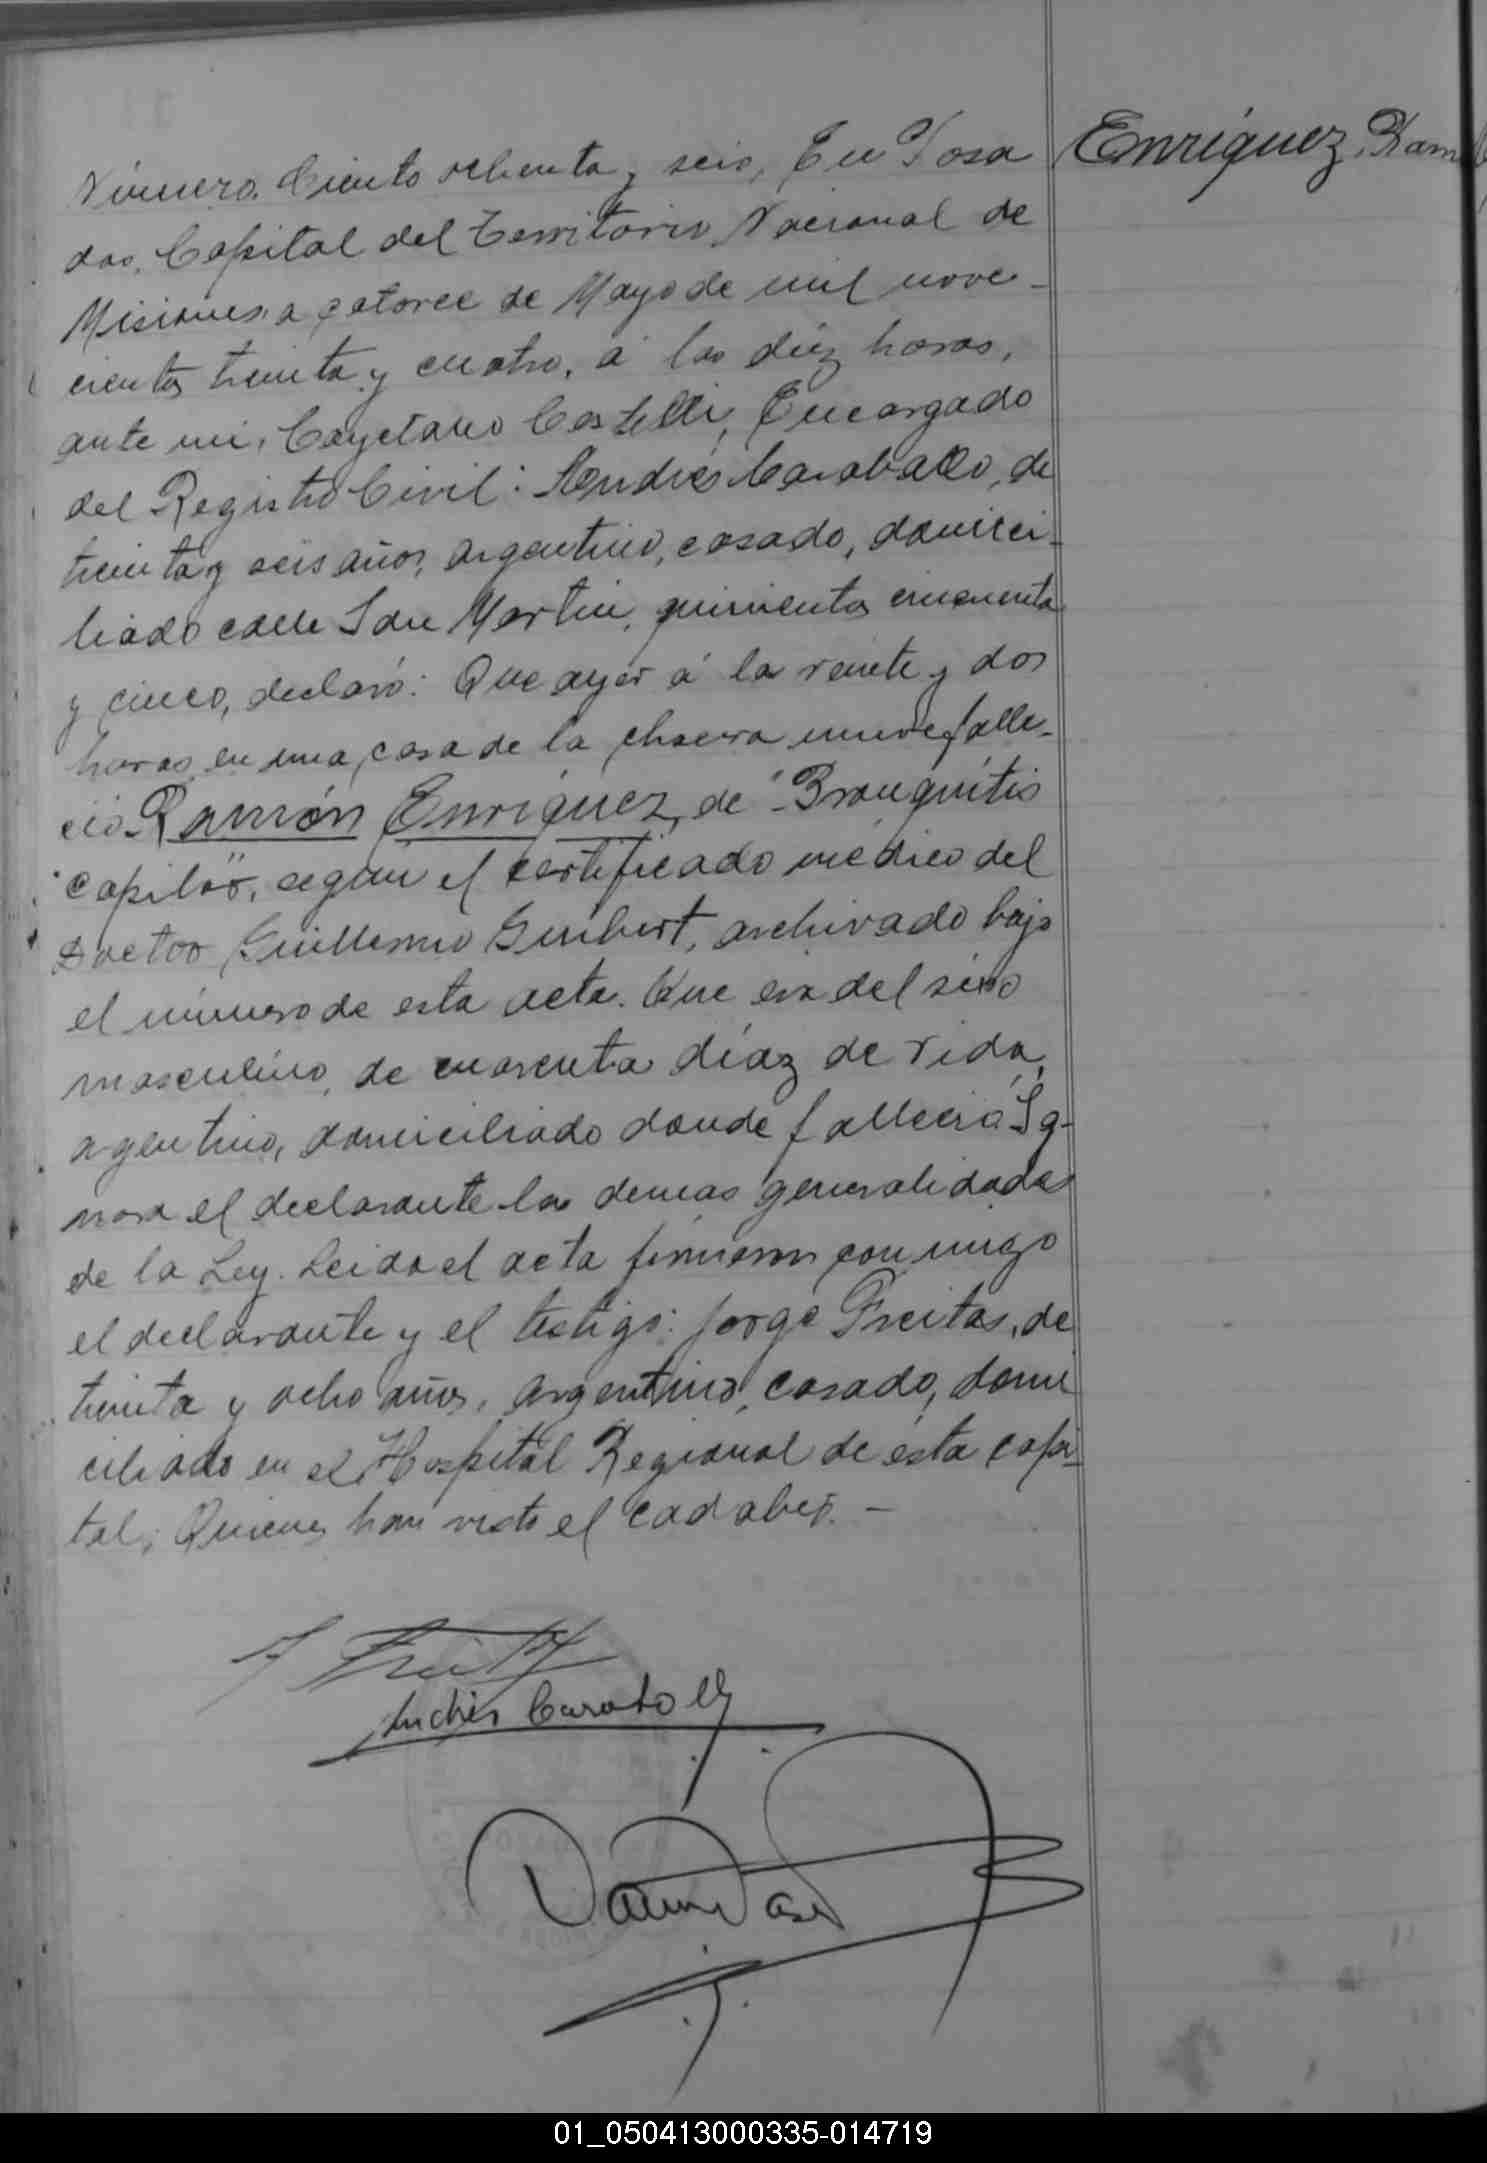 Enríquez, Ram
Número. Ciento ochenta y seis, En Posa
das, Capital del Territorio Nacional de
Misiones, a catorce de Mayo de mil nove-
cientos treinta y cuatro, á las diéz horas,
ante mi, Cayetano Castelli, Encargado
del Registro Civil: Andrés Caraballo, de
treinta y seis años, argentino, casado, domici-
liado calle San Martin, quinientos cincuenta
y cinco, declaró: Que ayer á la veinte y dos
horas, en una casa de la chacra nueve falle-
ció Ramón Enríquez, de "Bronquítis
capilar", segun el certificado médico del
Doctor Guillermo archivado bajo
el número de esta acta. Que era del sexo
masculino, de cuarenta díaz de vida,
argentino, domiciliado donde falleció Ig-
nora el declarante las demas generalidades
de la Ley. Leida el acta firmaron conmigo
el declarante y el testigo: Jorge Freitas, de
treinta y ocho años, argentino, casado, domi
ciliado en el Hospital Regional de ésta capi-
tal; Quienes han visto el cadaber. -
Andrés Caraballo
01_050413000335-014719